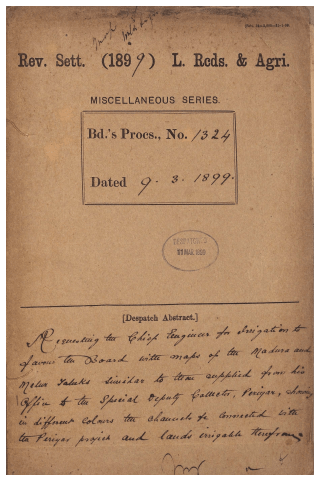 Rev. Sett. (1899) L. Rcds. & Agri.
MISCELLANEOUS SERIES.
Bd.'s Procs., No. 1324
Dated 9. 3. 1899.
[Despatch Abstract.]
Requesting the Chief Engineer for Irrigation to
favour the Board with maps of the Madura and
Melur Taluks similar to those supplied from his
Office to the Special Deputy Collector, Periyar, showing
in different colours the channels &c connected with
the Periyar project and lands irrigable therefrom.